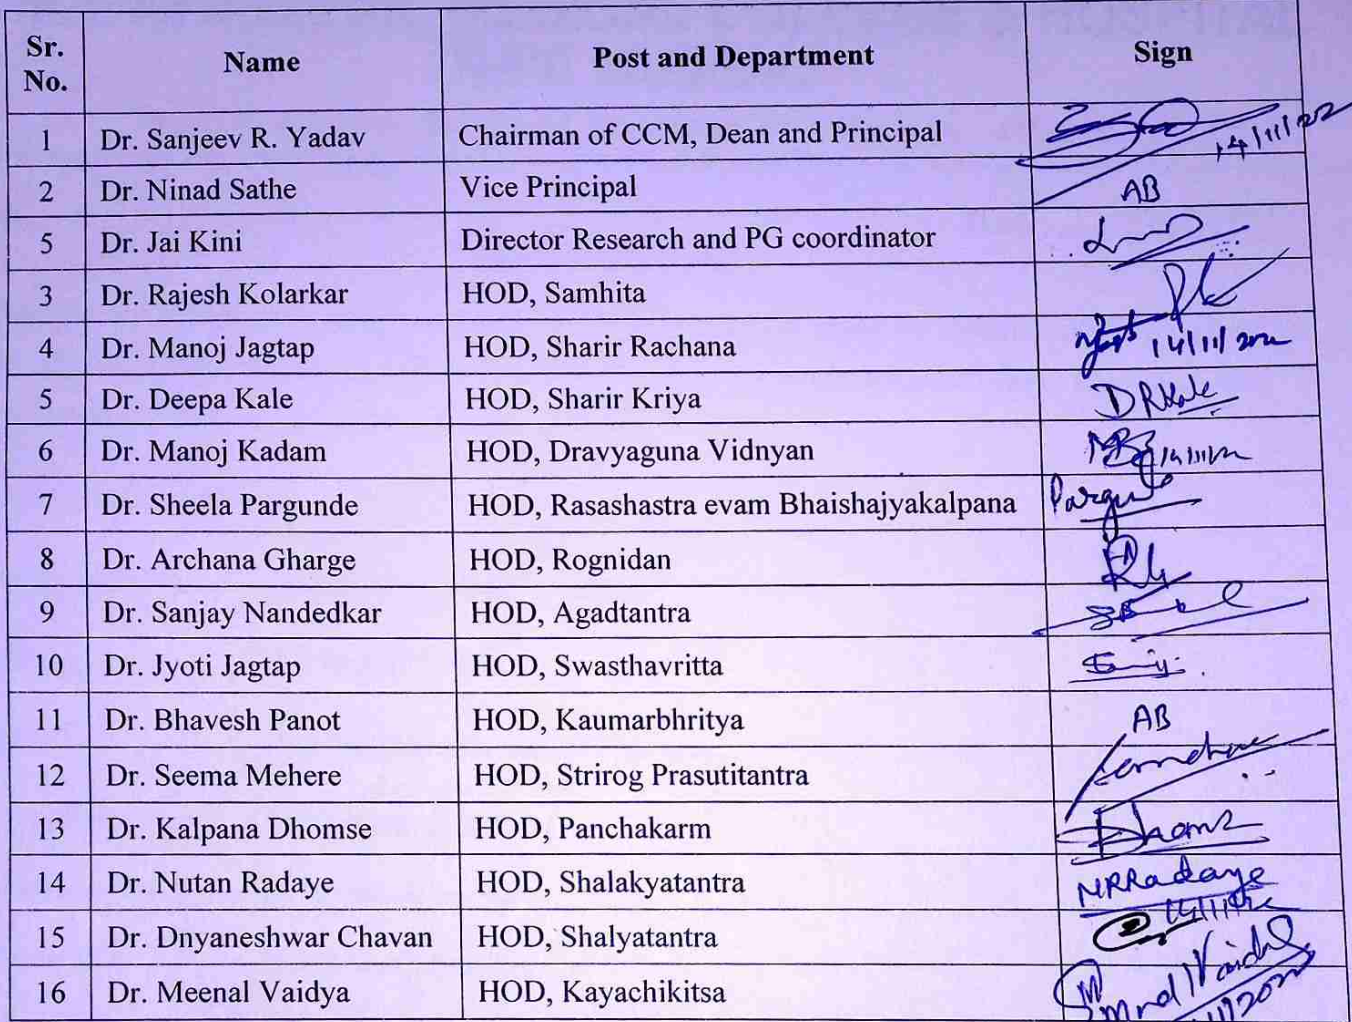 Sr. No. Name Post and Department Sign
1 Dr. Sanjeev R. Yadav Chairman of CCM, Dean and Principal 14/11/22
2 Dr. Ninad Sathe Vice Principal AB
5 Dr. Jai Kini Director Research and PG coordinator
3 Dr. Rajesh Kolarkar HOD, Samhita
4 Dr. Manoj Jagtap HOD, Sharir Rachana 14/11/2022
5 Dr. Deepa Kale HOD, Sharir Kriya DRKale
6 Dr. Manoj Kadam HOD, Dravyaguna Vidnyan
7 Dr. Sheela Pargunde HOD, Rasashastra evam Bhaishajyakalpana
8 Dr. Archana Gharge HOD, Rognidan
9 Dr. Sanjay Nandedkar HOD, Agadtantra
10 Dr. Jyoti Jagtap HOD, Swasthavritta
11 Dr. Bhavesh Panot HOD, Kaumarbhritya AB
12 Dr. Seema Mehere HOD, Strirog Prasutitantra
13 Dr. Kalpana Dhomse HOD, Panchakarm
14 Dr. Nutan Radaye HOD, Shalakyatantra NRRadaye
15 Dr. Dnyaneshwar Chavan HOD, Shalyatantra
16 Dr. Meenal Vaidya HOD, Kayachikitsa